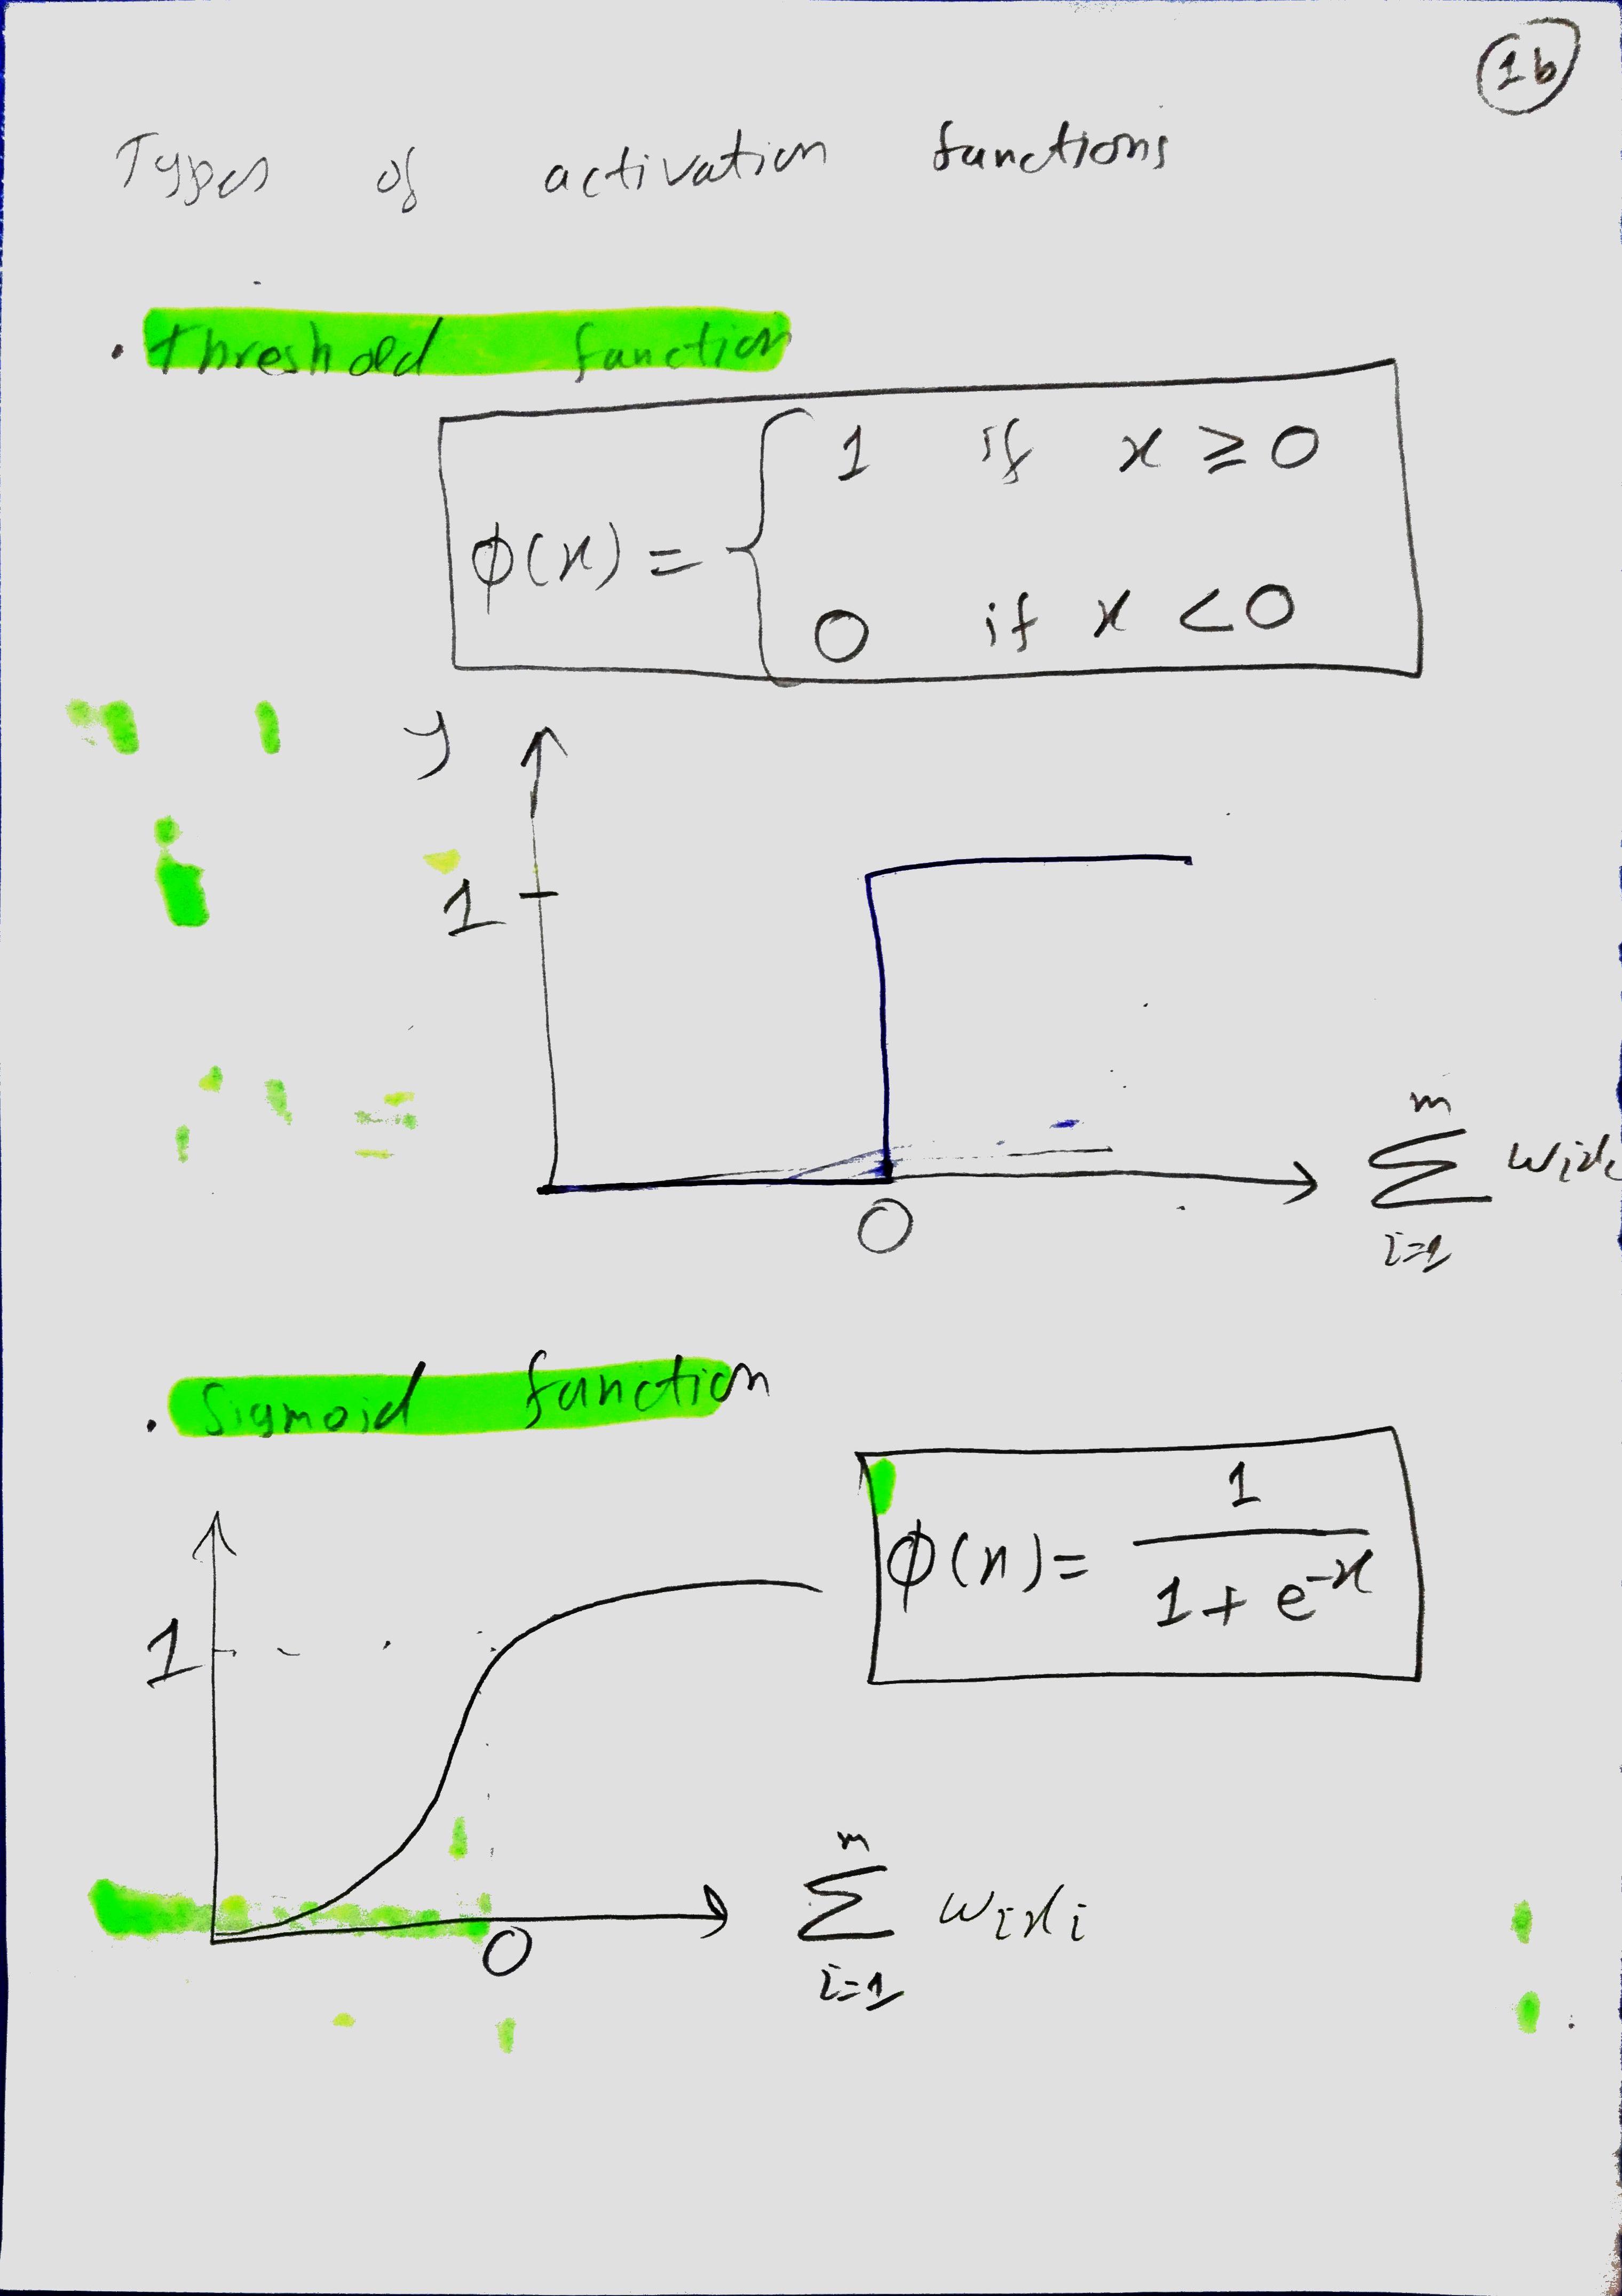 1b
Types of activation functions
. threshold function
ϕ(x) = { 1 if x ≥ 0
0 if x < 0
y
1
0
m
∑ wixi
i=1
. Sigmoid function
ϕ(x) = 1 / (1 + e^-x)
1
0
m
∑ wixi
i=1